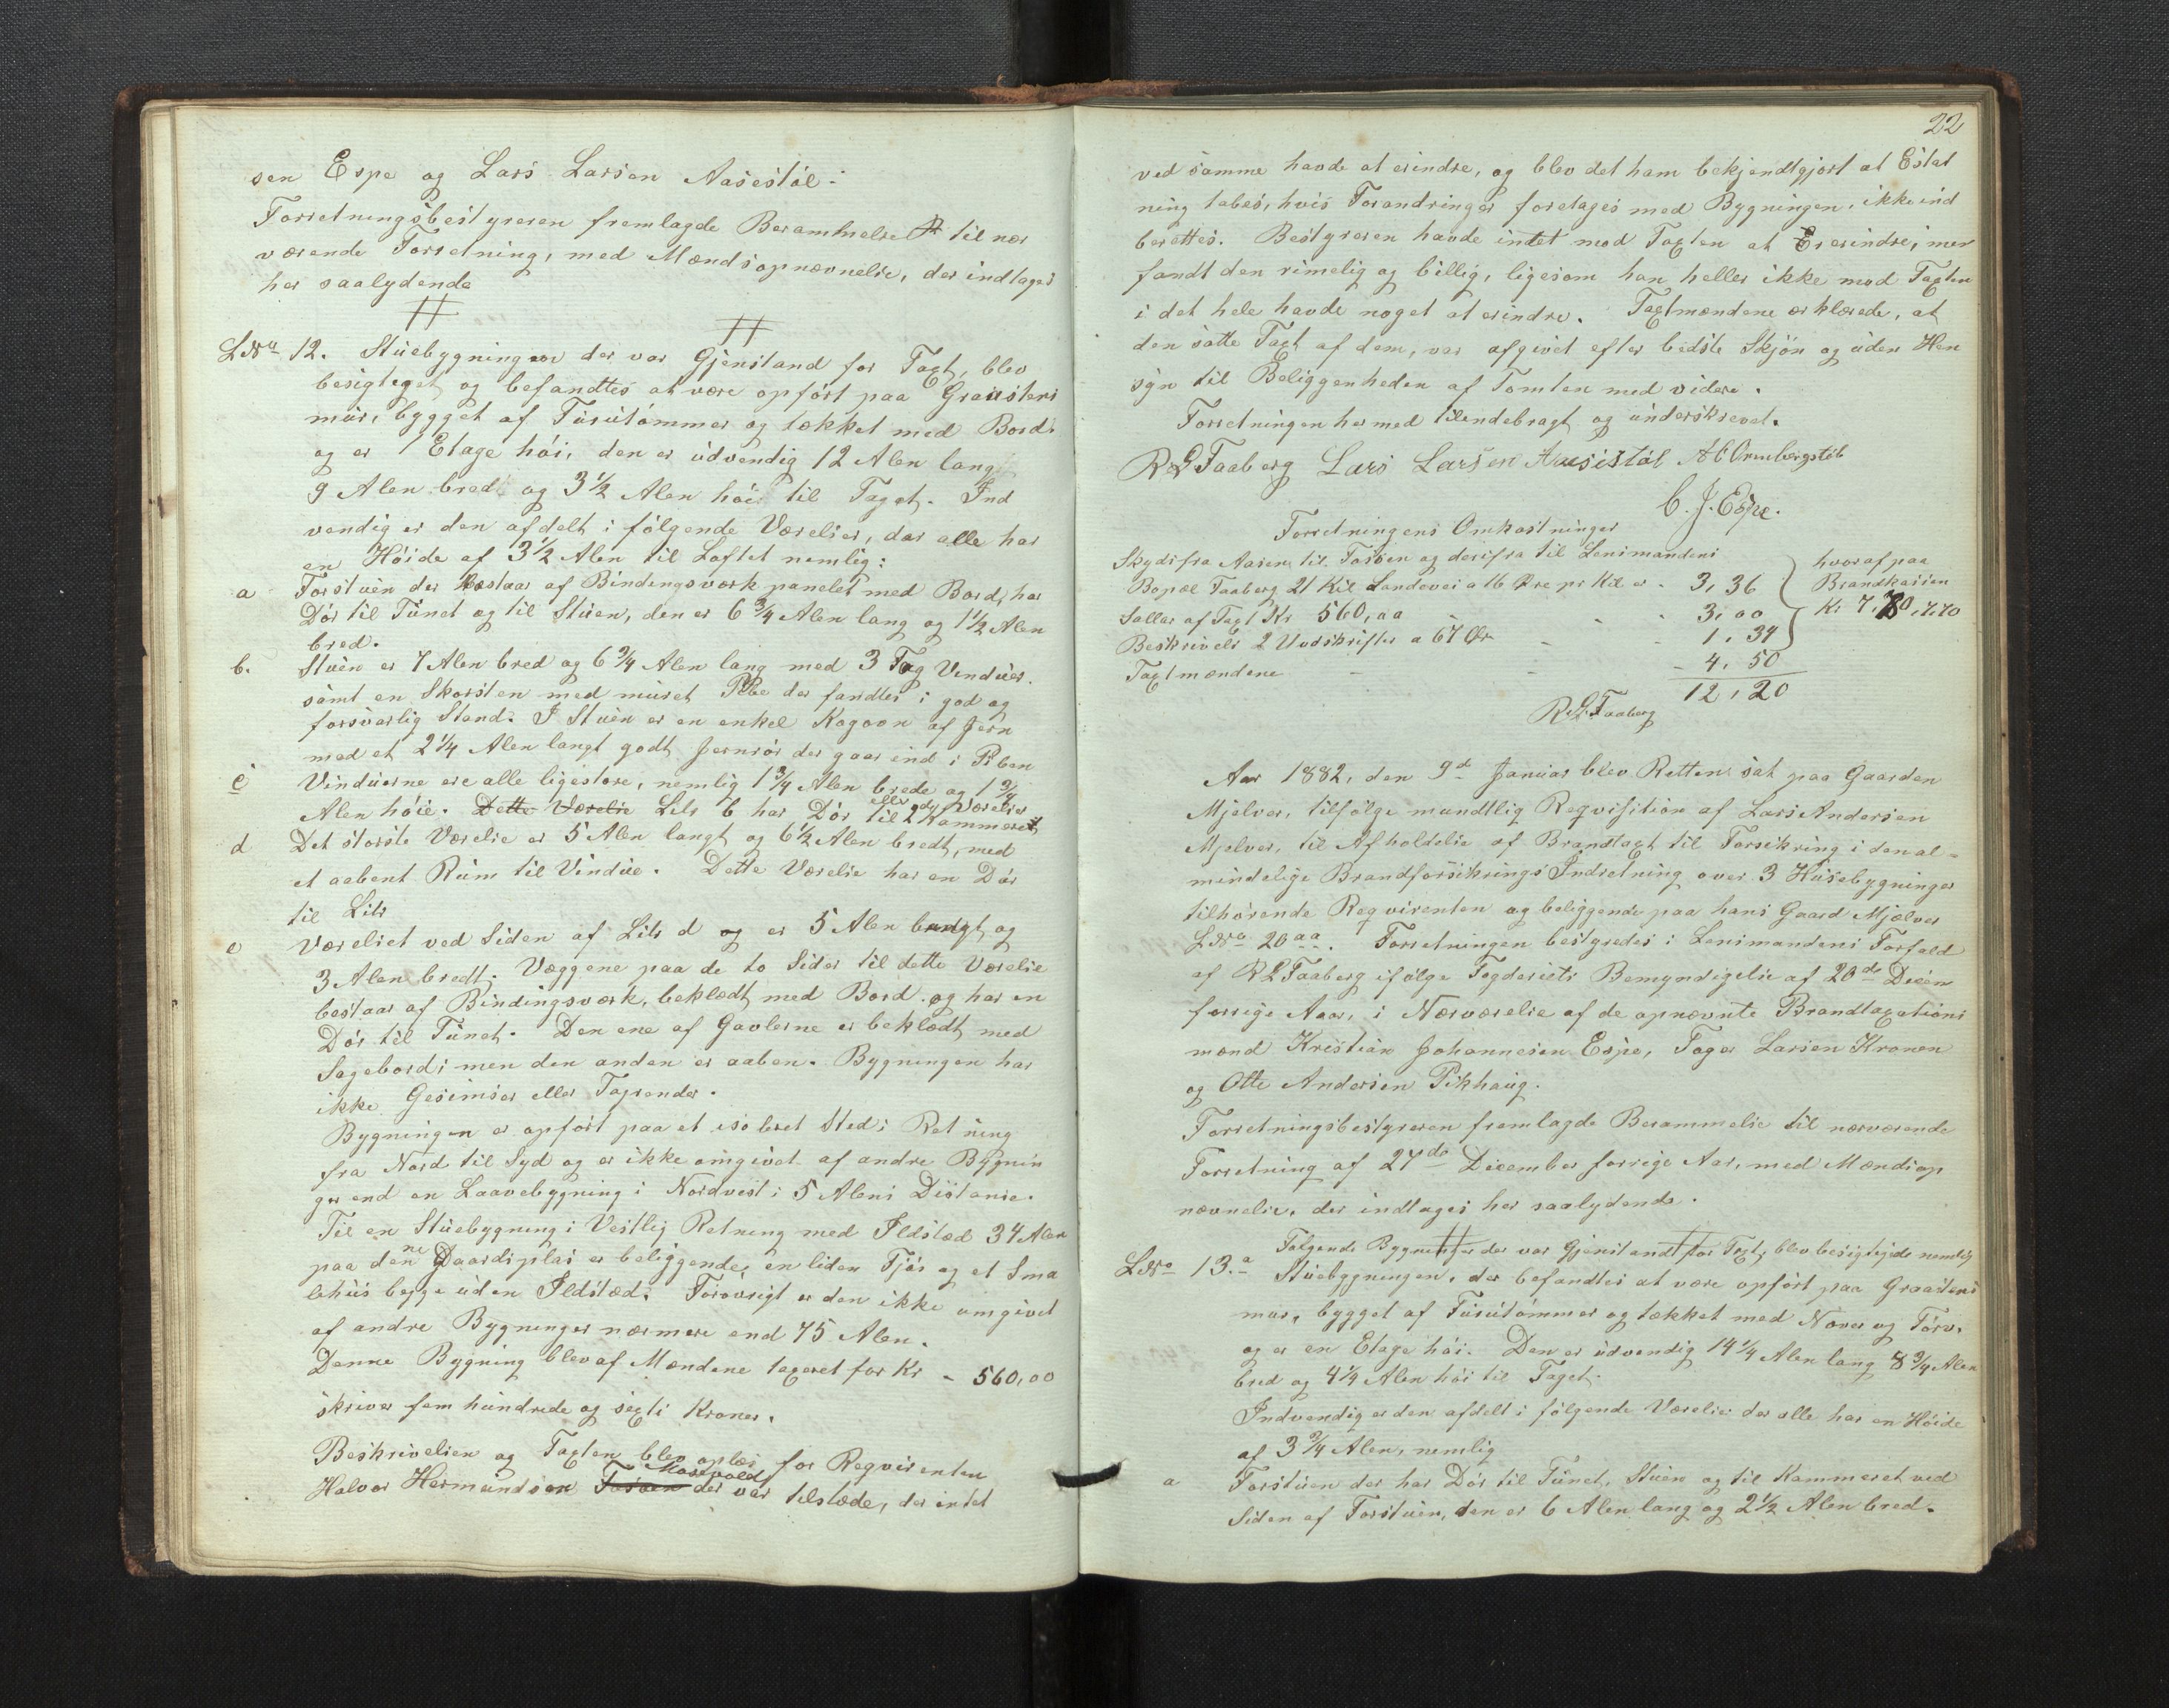 sen Espe og Lars Larsen Aasestøl.
Forretningsbestyreren fremlagde Berammelse til nær
værende Forretning, med Mændsopnævnelse, der indtages
her saalydende
LNo 12. Stuebygningen der var Gjenstand for Taxt, blev
besigtiget og befandtes at være opført paa Graastens
mur, bygget af Furutømmer og tækket med Bord.
og er 1 Etage høi, den er udvendig 12 Alen lang
9 Alen bred og 3½ Alen høi til Taget. Ind
vendig er den afdelt i følgende Værelser, der alle har
en Høide af 3½ Alen til Loftet nemlig:
a Forstuen der bestaar af Bindingsværk panelet med Bord, har
Dør til Tunet og til Stuen, den er 6¾ Alen lang og 1½ Alen
bred.
b. Stuen er 7 Alen bred og 6¾ Alen lang med 3 Fag Vinduer.
samt en Skorsten med muret Pibe der fandtes i god og
forsvarlig Stand. I Stuen er en enkel Kogoon af Jern
med et 2¼ Alen langt godt Jernrør der gaar ind i Piben
c Vinduerne ere alle ligestore, nemlig 1¾ Alen brede og 1¾
Alen høie. Dette Værelse Litr b har Dør til 2 Kammeret
eller 2de Værelser
d Det største Værelse er 5 Alen langt og 6½ Alen bredt, med
et aabent Rum til Vindue. Dette Værelse har en Dør
til Litr
e Værelset ved Siden af Litr d og er 5 Alen langt og
3 Alen bredt. Væggene paa de to Sider til dette Værelse
bestaar af Bindingsværk, beklædt med Bord og har en
Dør til Tunet. Den ene af Gavlerne er beklædt med
Sagebord; men den anden er aaben. Bygningen har
ikke Gesimser eller Tagrender.
Bygningen er opført paa et isoleret Sted; Retning
fra Nord til Syd og er ikke omgivet af andre Bygnin
ger end en Laavebygning i Nordvest i 5 Alens Distanse.
Til en Stuebygning i Vestlig Retning med Ildsted 34 Alen
paa denne Gaardsplas er beliggende, en liden Fjøs og et Sma
lehus begge uden Ildsted. Forøvrigt er den ikke omgivet
af andre Bygninger nærmere end 75 Alen.
Denne Bygning blev af Mændene taxeret for Kr - 560,00
skriver fem hundrede og sexti Kroner.
Beskrivelsen og Taxten blev oplæs for Reqvirenten
Halvor Hermundsen Fossen Mostvold der var tilstede, der intet
22
ved samme havde at erindre, og blev det ham bekjendtgjort at Erstat
ning tabes, hvis Forandringer foretages med Bygningen, ikke ind
berettes. Bestyreren havde intet mod Taxten at erindre, men
fandt den rimelig og billig, ligesom han heller ikke mod Taxten
i det hele havde noget at erindre. Taxtmændene erklærede, at
den satte Taxt af dem, var afgivet efter bedste Skjøn og uden Hen
syn til Beliggenheden af Tomten med videre.
Forretningen hermed tilendebragt og underskrevet.
R L Faaberg Lars Larsen Aasestøl A C Ormbergstøl
C. J. Espe.
Forretningens Omkostninger
Skyds fra Aasen til Fossen og derifra til Lensmandens
Bopæl Faaberg 21 Kil Landevei a 16 Øre pr Kil er - 3,36
Sallar af Taxt Kr 560,00 - - 3,00
Beskrivels 2 Uudskrifter a 67 Ør - - 1,34
Taxtmændene - - 4,50
12,20
hvoraf paa
Brandkassen
Kr 7,70, 7,70
R L Faaberg
Aar 1882, den 9d Januar blev Retten sat paa Gaarden
Mjelver, tilfølge mundtlig Reqvisition af Lars Andersen
Mjelver, til Afholdelse af Brandtaxt til Forsikring i den al-
mindelige Brandforsikrings Indretning over 3 Husebygninger
tilhørende Reqvirenten og beliggende paa hans Gaard Mjelver
LNo 20aa. Forretningen bestyredes i Lensmandens Forfald
af R L Faaberg ifølge Fogderiets Bemyndigelse af 20de Decem
forrige Aar, i Nærværelse af de opnævnte Brandtaxations
mænd Kristian Johannesen Espe, Tager Larsen Kronen
og Otte Andersen Pikhaug.
Forretningsbestyreren fremlagde Berammelse til nærværende
Forretning af 27de December forrige Aar, med Mændsop
nævnelse, der indtages her saalydende.
Følgende Bygninger der var Gjenstand for Taxt, blev besigtigede nemlig
LNo 13.a Stuebygningen, der befandtes at være opført paa Graastens
mur, bygget af Furutømmer og tækket med Næver og Tørv,
og er en Etage høi. Den er udvendig 14¼ Alen lang 8¾ Alen
bred og 4¼ Alen høi til Taget.
Indvendig er den afdelt i følgende Værelser der alle har en Høide
af 3¾ Alen, nemlig
a Forstuen der har Dør til Tunet, Stuen og til Kammeret ved
Siden af Forstuen, den er 6 Alen lang og 2½ Alen bred.